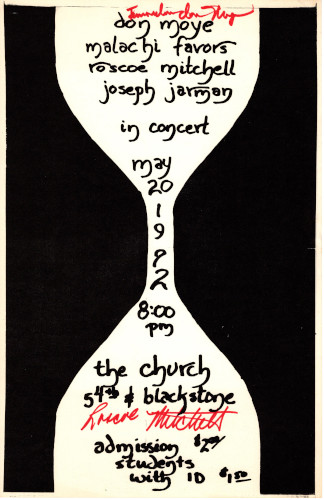 don moye
malachi favors
roscoe mitchell
joseph jarman
in concert
may
20
1
9
7
2
8:00
pm
the church
54th & blackstone
Roscoe Mitchell
admission $2.00
students
with ID $1.50